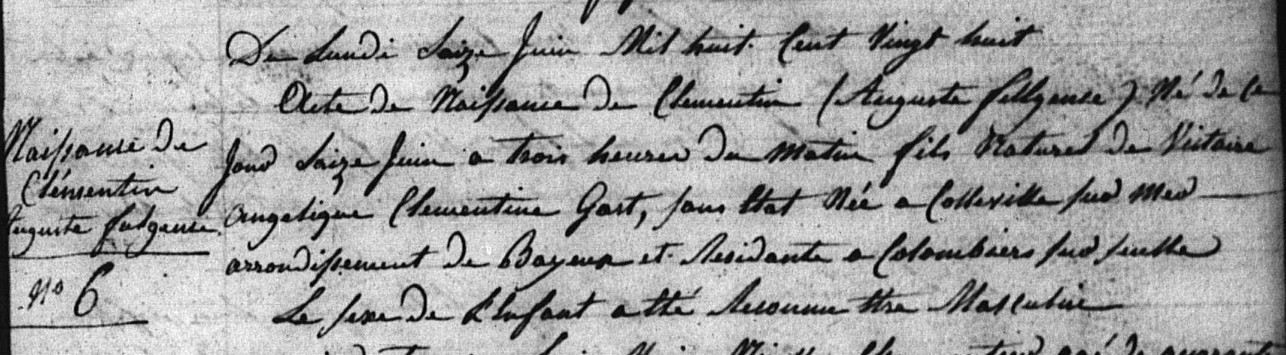 Du Lundi Saize Juin Mil huit Cent Vingt huit
Acte de Naissance de Clementin (Auguste fulgense) Né de Ce
Jour Saize Juin a trois heures du Matin fils Naturel de Victoire
Angelique Clementine Gost, sans Etat Née a Colleville sur Mer
arrondissement de Bayeux et Residante a Colombiers sur seulle
Le sexe de L'Enfant a été Reconnu Etre Masculin
Naissance de
Clémentin
Auguste fulgense
N° 6